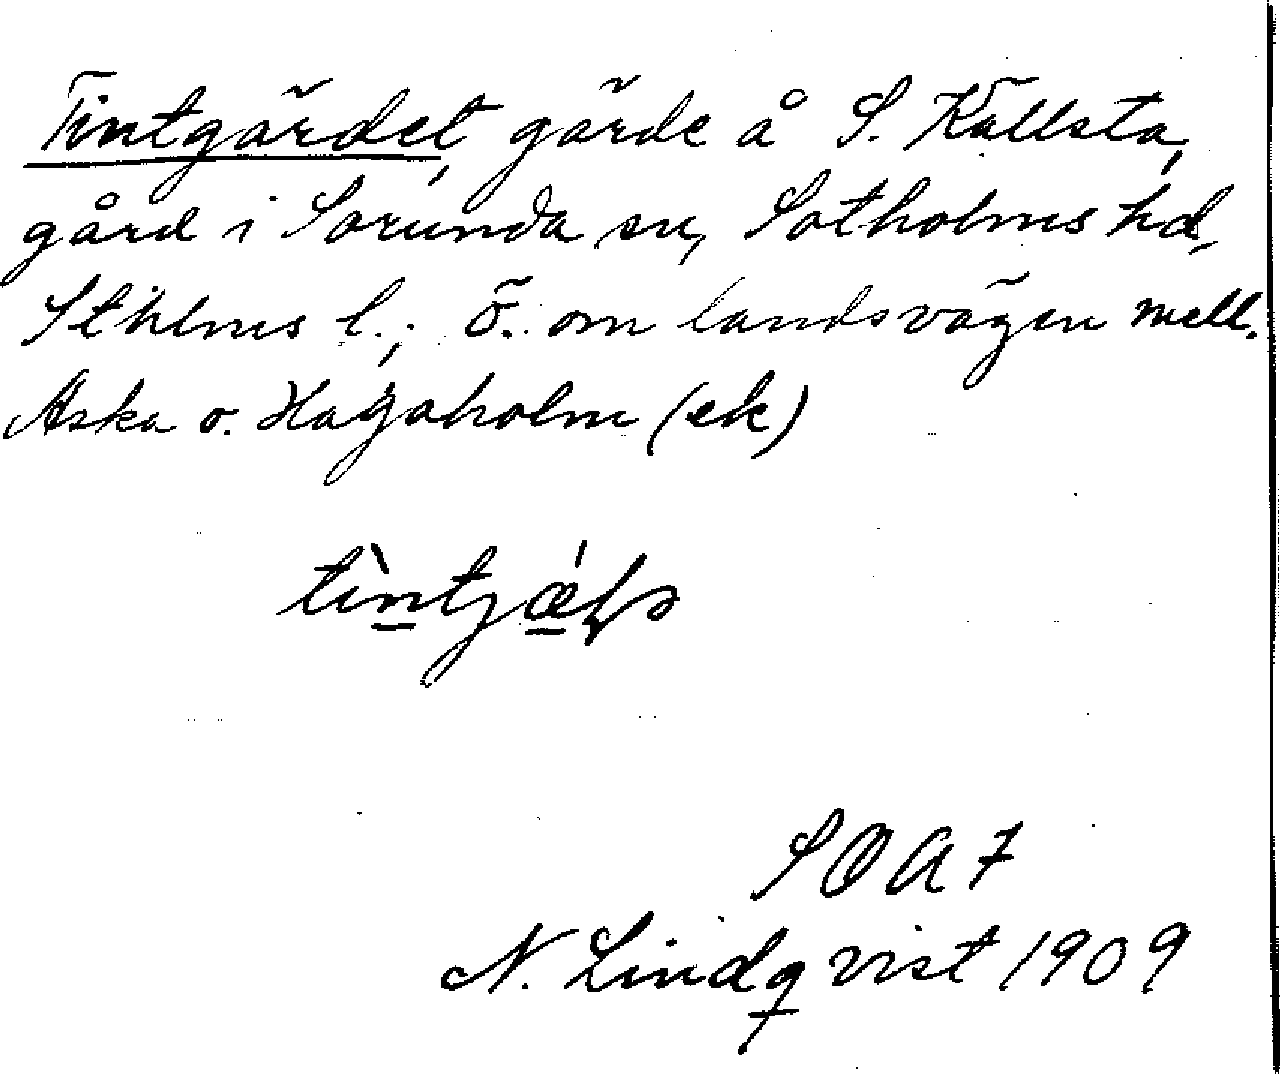 Tintgärdet, gärde å S. Källsta,
gård i Sorunda sn, Sotholms hd,
Sthlms l.; ö. om landsvägen mell.
Aska o. Hagaholm (ek)
SOA 7
N. Lindqvist 1909